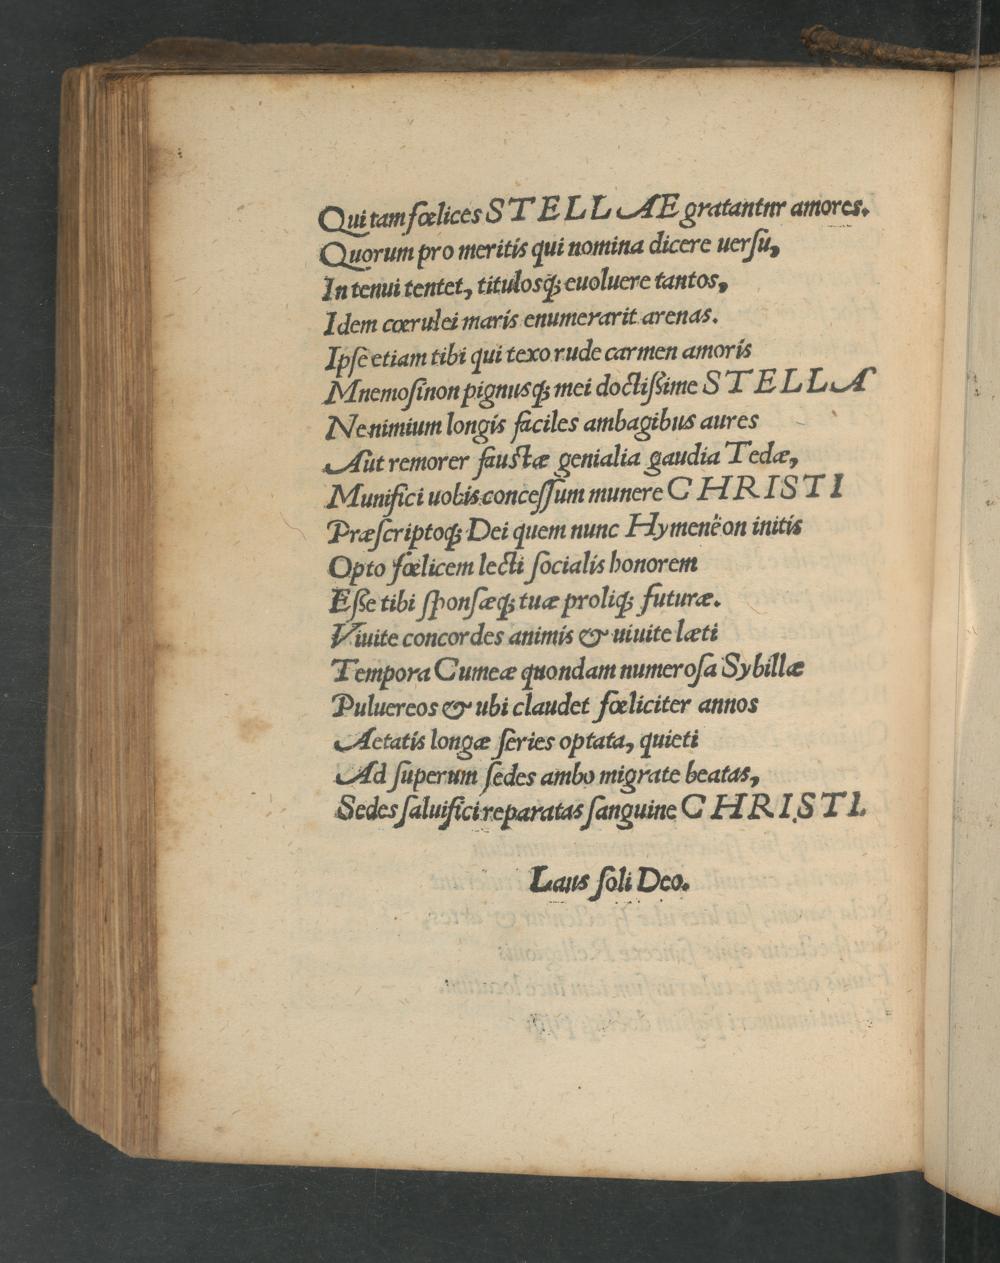 Qui tam fœlices STELLAE gratantnr amores.
Quorum pro meritis qui nomina dicere uersu,
In tenui tentet, titulosq́; euoluere tantos,
Idem cœrulei maris enumerarit arenas.
Ipse etiam tibi qui texo rude carmen amoris
Mnemosinon pignusq́; mei doctissime STELLA
Ne nimium longis faciles ambagibus aures
Aut remorer faustæ genialia gaudia Tedæ,
Munifici uobis concessum munere CHRISTI
Præscriptoq́; Dei quem nunc Hymenëon initis
Opto fœlicem lecti socialis honorem
Esse tibi sponsæq́; tuæ proliq́; futuræ.
Viuite concordes animis & uiuite læti
Tempora Cumeæ quondam numerosa Sybillæ
Puluereos & ubi claudet fœliciter annos
Aetatis longæ series optata, quieti
Ad superum sedes ambo migrate beatas,
Sedes saluifici reparatas sanguine CHRISTI.
Laus soli Deo.